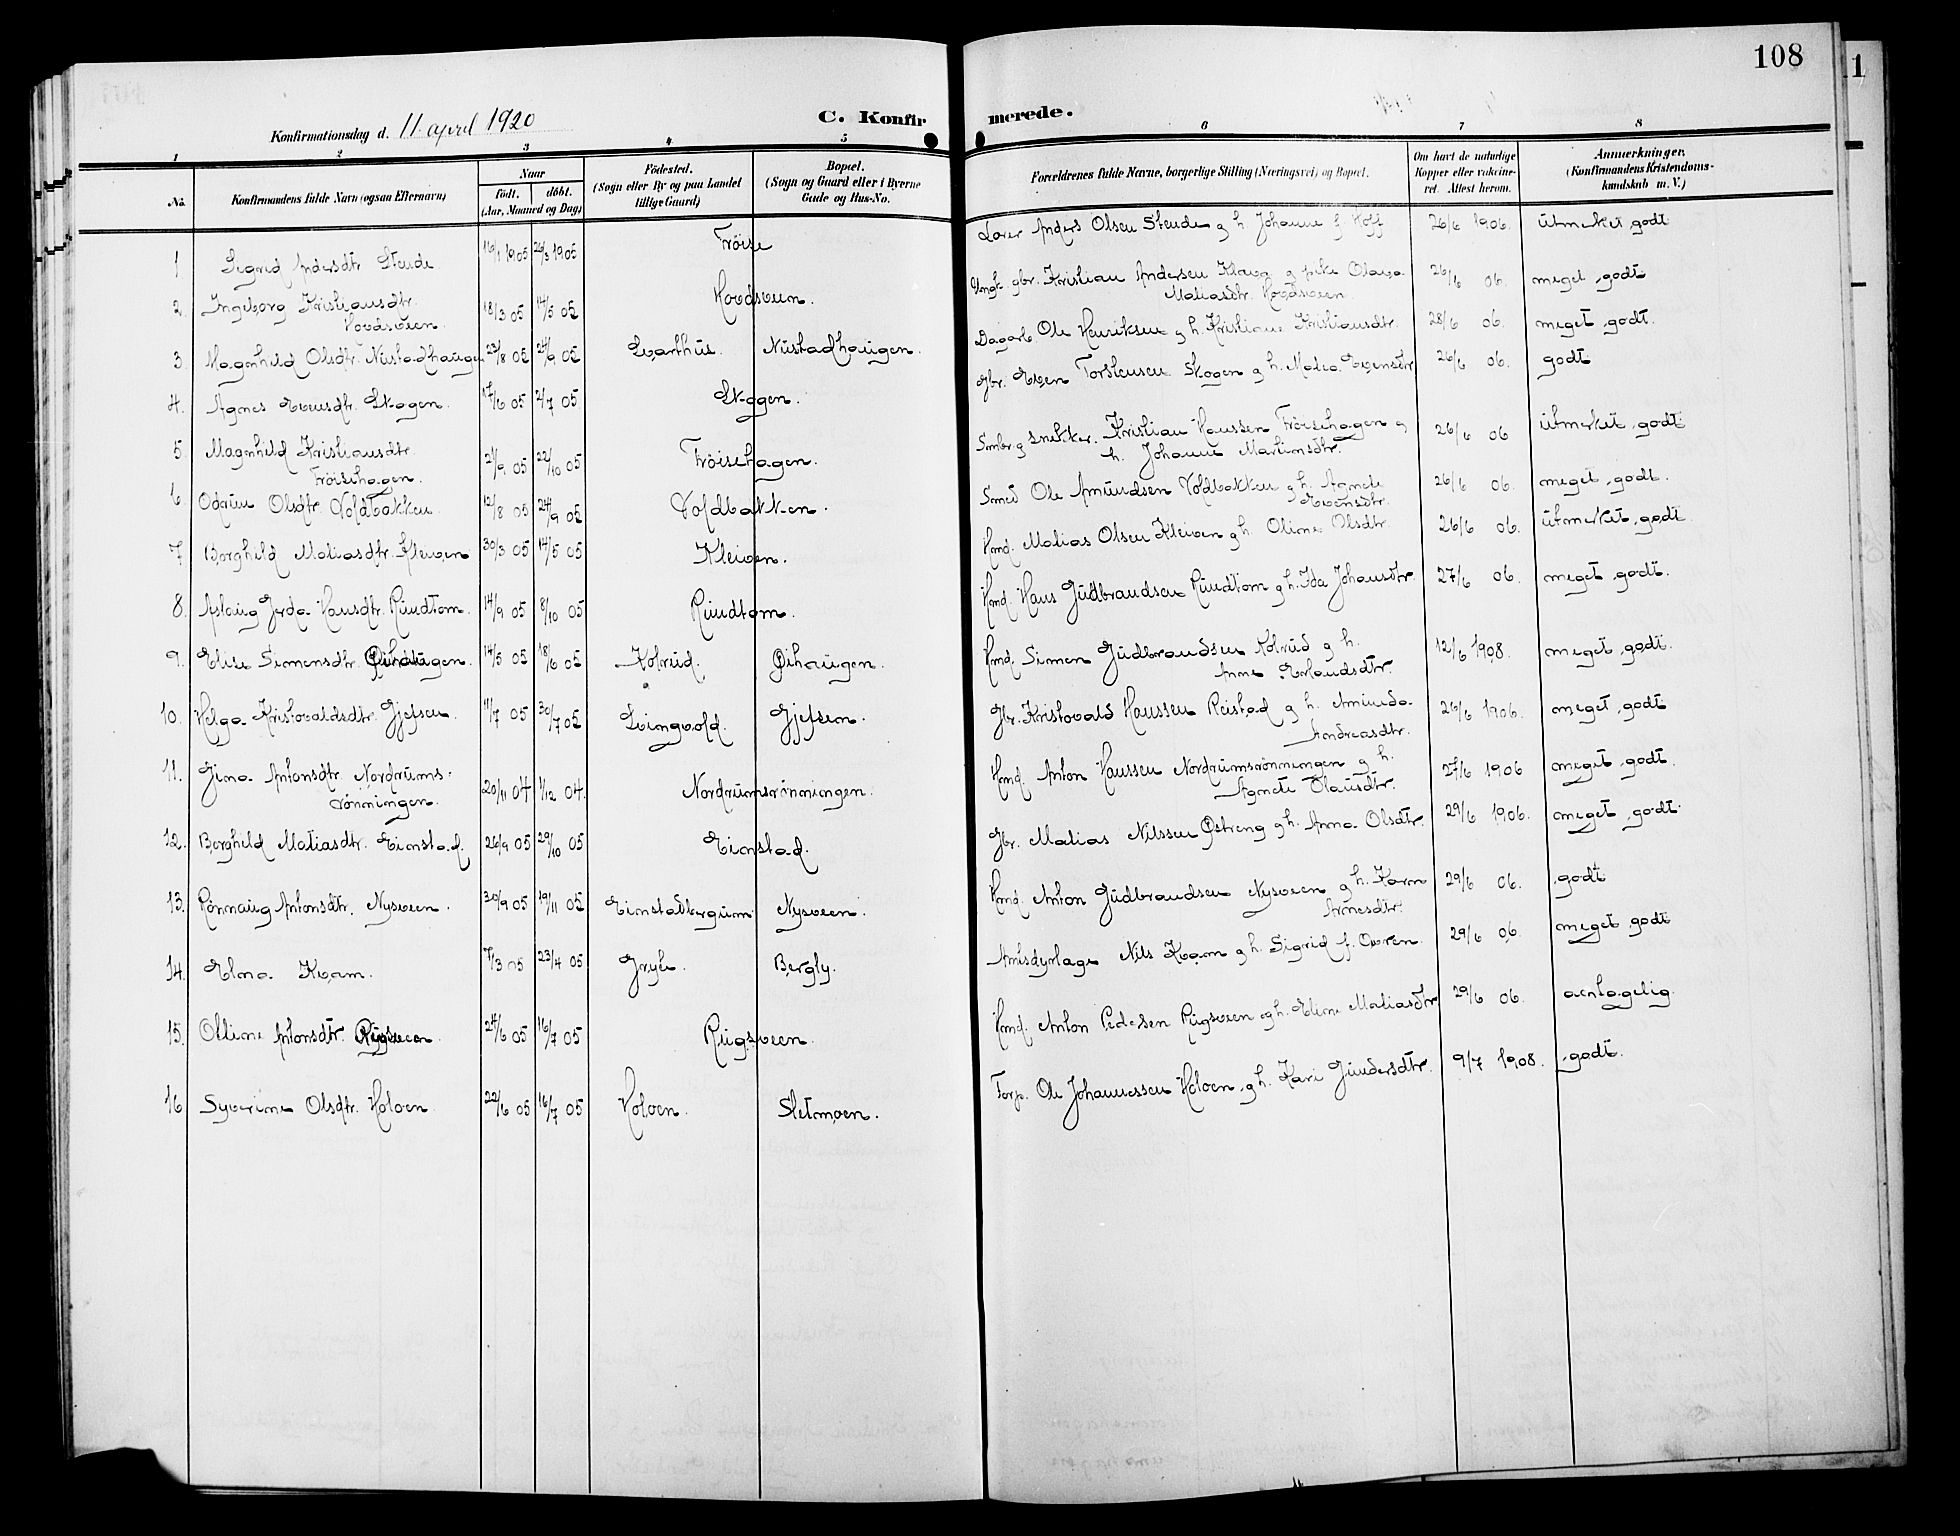 108
1
Konfirmationsdag d. 11. april 1920
C. Konfirmerede.
1 2 3 4 5 6 7 8
No.
Konfirmandens fulde Navn (ogsaa Efternavn)
Naar
født. døbt.
(Aar, Maaned og Dag)
Fødested.
(Sogn eller By og paa Landet
tillige Gaard)
Bopæl.
(Sogn og Gaard eller i Byerne
Gade og Hus-No.
Forældrenes fulde Navne, borgerlige Stilling (Næringsvei) og Bopæl.
Om havt de naturlige
Kopper eller vakcine-
ret. Attest herom.
Anmerkninger.
(Konfirmandens Kristendoms-
kundskab m. V.)
1 Sigrid Andersdtr. Stende 16/1 1905 26/3 1905 Fröise Lærer Anders Olsen Stende og h. Johanne f. Hoff 26/6 1906. utmerket godt
2. Ingeborg Kristiansdtr.
Hovdsveen. 18/3 05 14/5 05 Hovdsveen. Ungk. gbr. Kristian Andersen Klava og pike Olava
Matiasdtr. Hovdsveen 26/6 06. meget godt
3. Magnhild Olsdtr. Nustadhaugen 23/8 05 24/9 05 Svarthus. Nustadhaugen. Dagarb. Ole Henriksen og h. Kristiane Kristiansdtr. 28/6 06. meget godt.
4. Agnes Evensdtr. Skogen. 17/6 05 2/7 05 Skogen. Gbr. Even Torstensen Skogen og h. Matea Evensdtr 26/6 06. godt
5. Magnhild Kristiansdtr
Fröisehagen. 21/9 05 22/10 05 Fröisehagen. Smbr. og snekker. Kristian Hanssen Fröisehagen og
h. Johanne Martinsdtr. 26/6 06 utmerket godt
6. Odrun Olsdtr. Voldbakken. 12/8 05 24/9 05 Voldbakken. Smed Ole Amundsen Voldbakken og h. Agnete
Evensdtr. 26/6 06. meget godt.
7 Borghild Matiasdtr. Kleiven 30/3 05 14/5 05 Kleiven. Hmd. Matias Olsen Kleiven og h. Oline Olsdtr 26/6 06. utmerket godt
8. Aslaug Gerda Hansdtr. Rundtom. 14/9 05 8/10 05 Rundtom. Hmd. Hans Gudbrandsen Rundtom og h. Ida Johansdtr. 27/6 06. meget godt.
9. Elise Simensdtr. Øihaugen. 14/5 05 18/6 05 Kolrud. Øihaugen. Hmd. Simen Gudbrandsen Kolrud og h.
Anne Erlandsdtr. 12/6 1908. meget godt.
10. Helga Kristovaldsdtr. Gjefsen. 11/7 05 30/7 05 Svingvold. Gjefsen. Gbr. Kristovald Hanssen Reistad og h. Amunda
Andreasdtr. 26/6 1906. meget godt
11. Gina Antonsdtr Nordrums-
rönningen. 20/11 04 1/12 04. Nordrumsrönningen. Hmd. Anton Hanssen Nordrumsrönningen og h.
Agnete Olausdtr. 27/6 1906 meget godt.
12. Borghild Matiasdtr. Einstad. 26/9 05 29/10 05 Einstad. Gbr. Matias Nilssen Østreng og h. Anna Olsdtr. 29/6 1906. meget godt.
13. Rönnaug Antonsdtr. Nysveen. 30/9 05 19/11 05 Einstadbergum Nysveen. Hmd. Anton Gudbrandsen Nysveen og h. Karen
Arnesdtr. 29/6 06. godt
14. Elna Kvam. 7/3 05 23/4 05 Gryte. Bergly. Amtsdyrlæge Nils Kvam og h. Sigrid f. Overen. 29/6 06. meget godt
15. Olline Antonsdtr. Rugsveen. 24/6 05 16/7 05 Rugsveen. Hmd. Anton Pedersen Rugsveen og h. Eline Matiasdtr 29/6 06. antagelig.
16 Syverine Olsdtr. Holoen. 22/6 05 16/7 05 Holoen. Sletmoen. Forp. Ole Johannessen Holoen og h. Kari Gundersdtr. 9/7 1908. godt.